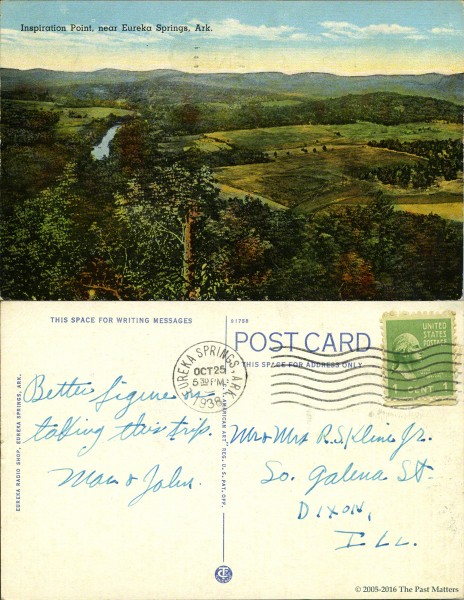 Inspiration Point, near Eureka Springs, Ark.
THIS SPACE FOR WRITING MESSAGES
91758
POST CARD
THIS SPACE FOR ADDRESS ONLY
UNITED
STATES
POSTAGE
1 CENT 1
EUREKA SPRINGS, ARK.
OCT 25
5 30 PM
1938
EUREKA RADIO SHOP, EUREKA SPRINGS, ARK.
AMERICAN ART, REG. U.S. PAT. OFF.
Better figure on
talking this trip.
Mom & John.
Mr & Mrs R.S. Kline Jr.
So. Galena St.
DIXON,
ILL.
CT
© 2005-2016 The Past Matters